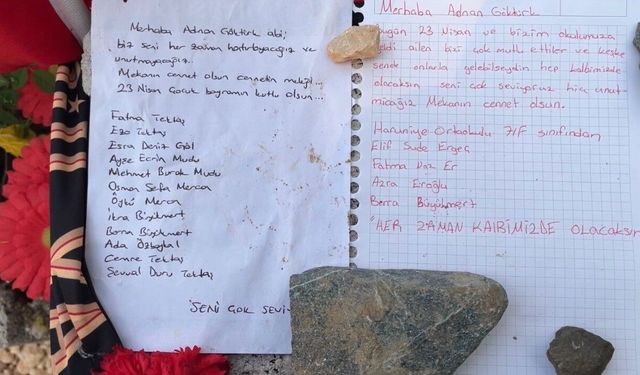 Merhaba Adnan Göktürk abi;
biz seni her zaman hatırlayacağız ve
unutmayacağız.
Mekanın cennet olsun cennetin meleği...
23 Nisan Çocuk bayramın kutlu olsun...
Fatma Tektaş
Ezo Tektaş
Esra Deniz Göl
Ayşe Ecrin Mudu
Mehmet Burak Mudu
Osman Sefa Mercan
Öykü Mercan
İkra Büyükmert
Berra Büyükmert
Ada Özbaykal
Cemre Tektaş
Şevval Duru Tektaş
SENİ ÇOK SEVİY
Merhaba Adnan Göktürk
bugün 23 Nisan ve bizim okulumuza
geldi ailen bizi çok mutlu ettiler ve keşke
sende onlarla gelebilseydin hep kalbimizde
olacaksın seni çok seviyoruz hiç unut
mıcağız Mekanın cennet olsun.
Haruniye Ortaokulu 7/F sınıfından
Elif Sude Ergeç
Fatma Naz Er
Azra Eroğlu
Berra Büyükmert
"HER ZAMAN KALBİMİZDE OLACAKSIN